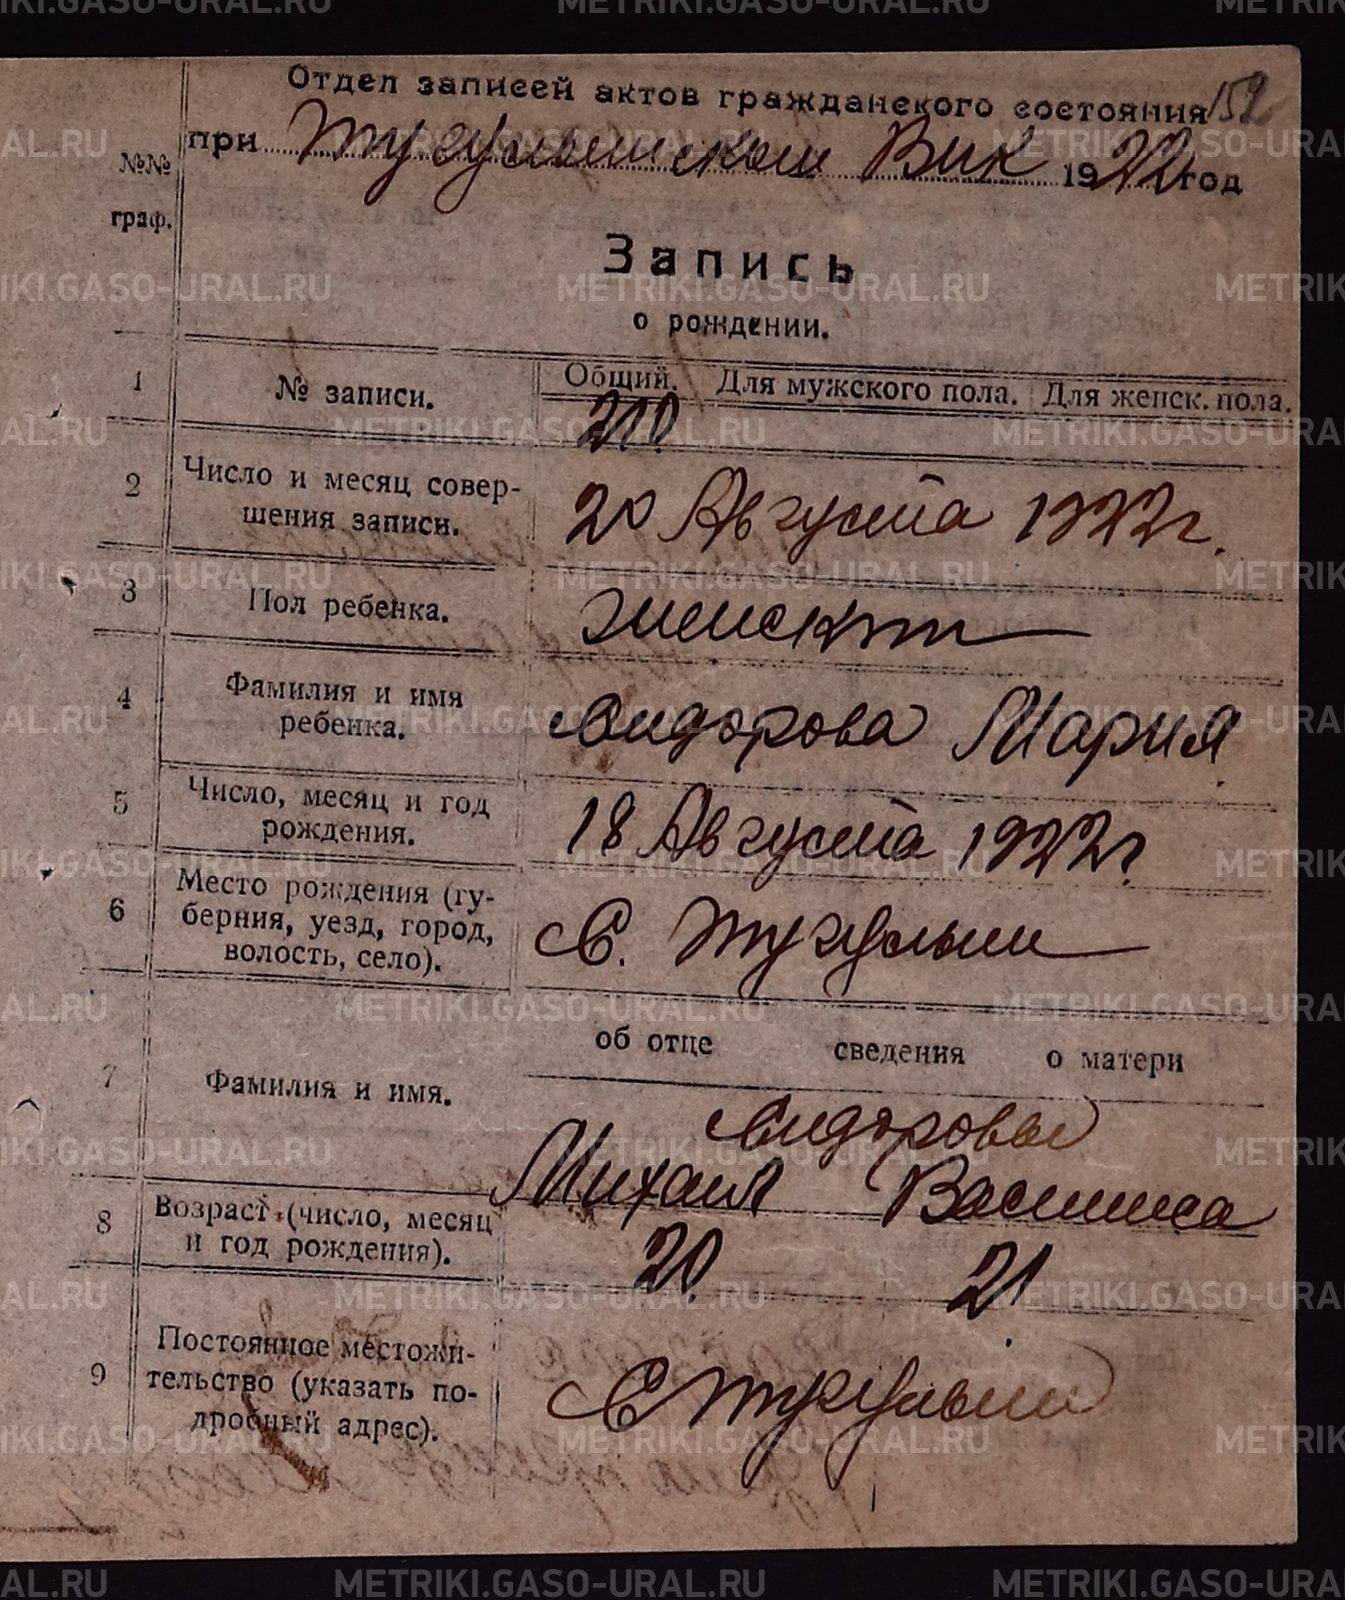 Отдел записей актов гражданского состояния 152
при Тугулымском Вик 1922 год
№№ граф.
Запись
о рождении.
1 № записи. Общий. Для мужского пола. Для женск. пола.
210
2 Число и месяц совер-
шения записи. 20 Августа 1922 г.
3 Пол ребенка. женский
4 Фамилия и имя
ребенка. Сидорова Мария
5 Число, месяц и год
рождения. 18 Августа 1922 г.
6 Место рождения (гу-
берния, уезд, город,
волость, село). С. Тугулым
об отце сведения о матери
7 Фамилия и имя. Сидоровы
Михаил Васса
8 Возраст (число, месяц
и год рождения). 20. 21
9 Постоянное местожи-
тельство (указать по-
дробный адрес). С Тугулым
METRIKI.GASO-URAL.RU